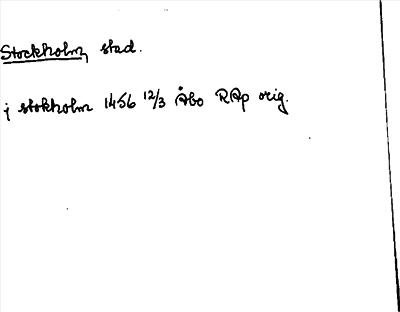 Stockholm, stad.
j stokholm 1456 12/3 Åbo RAp orig.